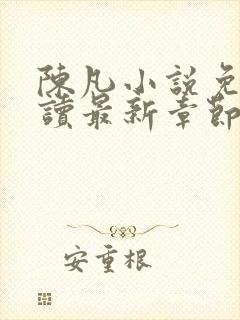 陳凡小説免
讀最新章節
安重根